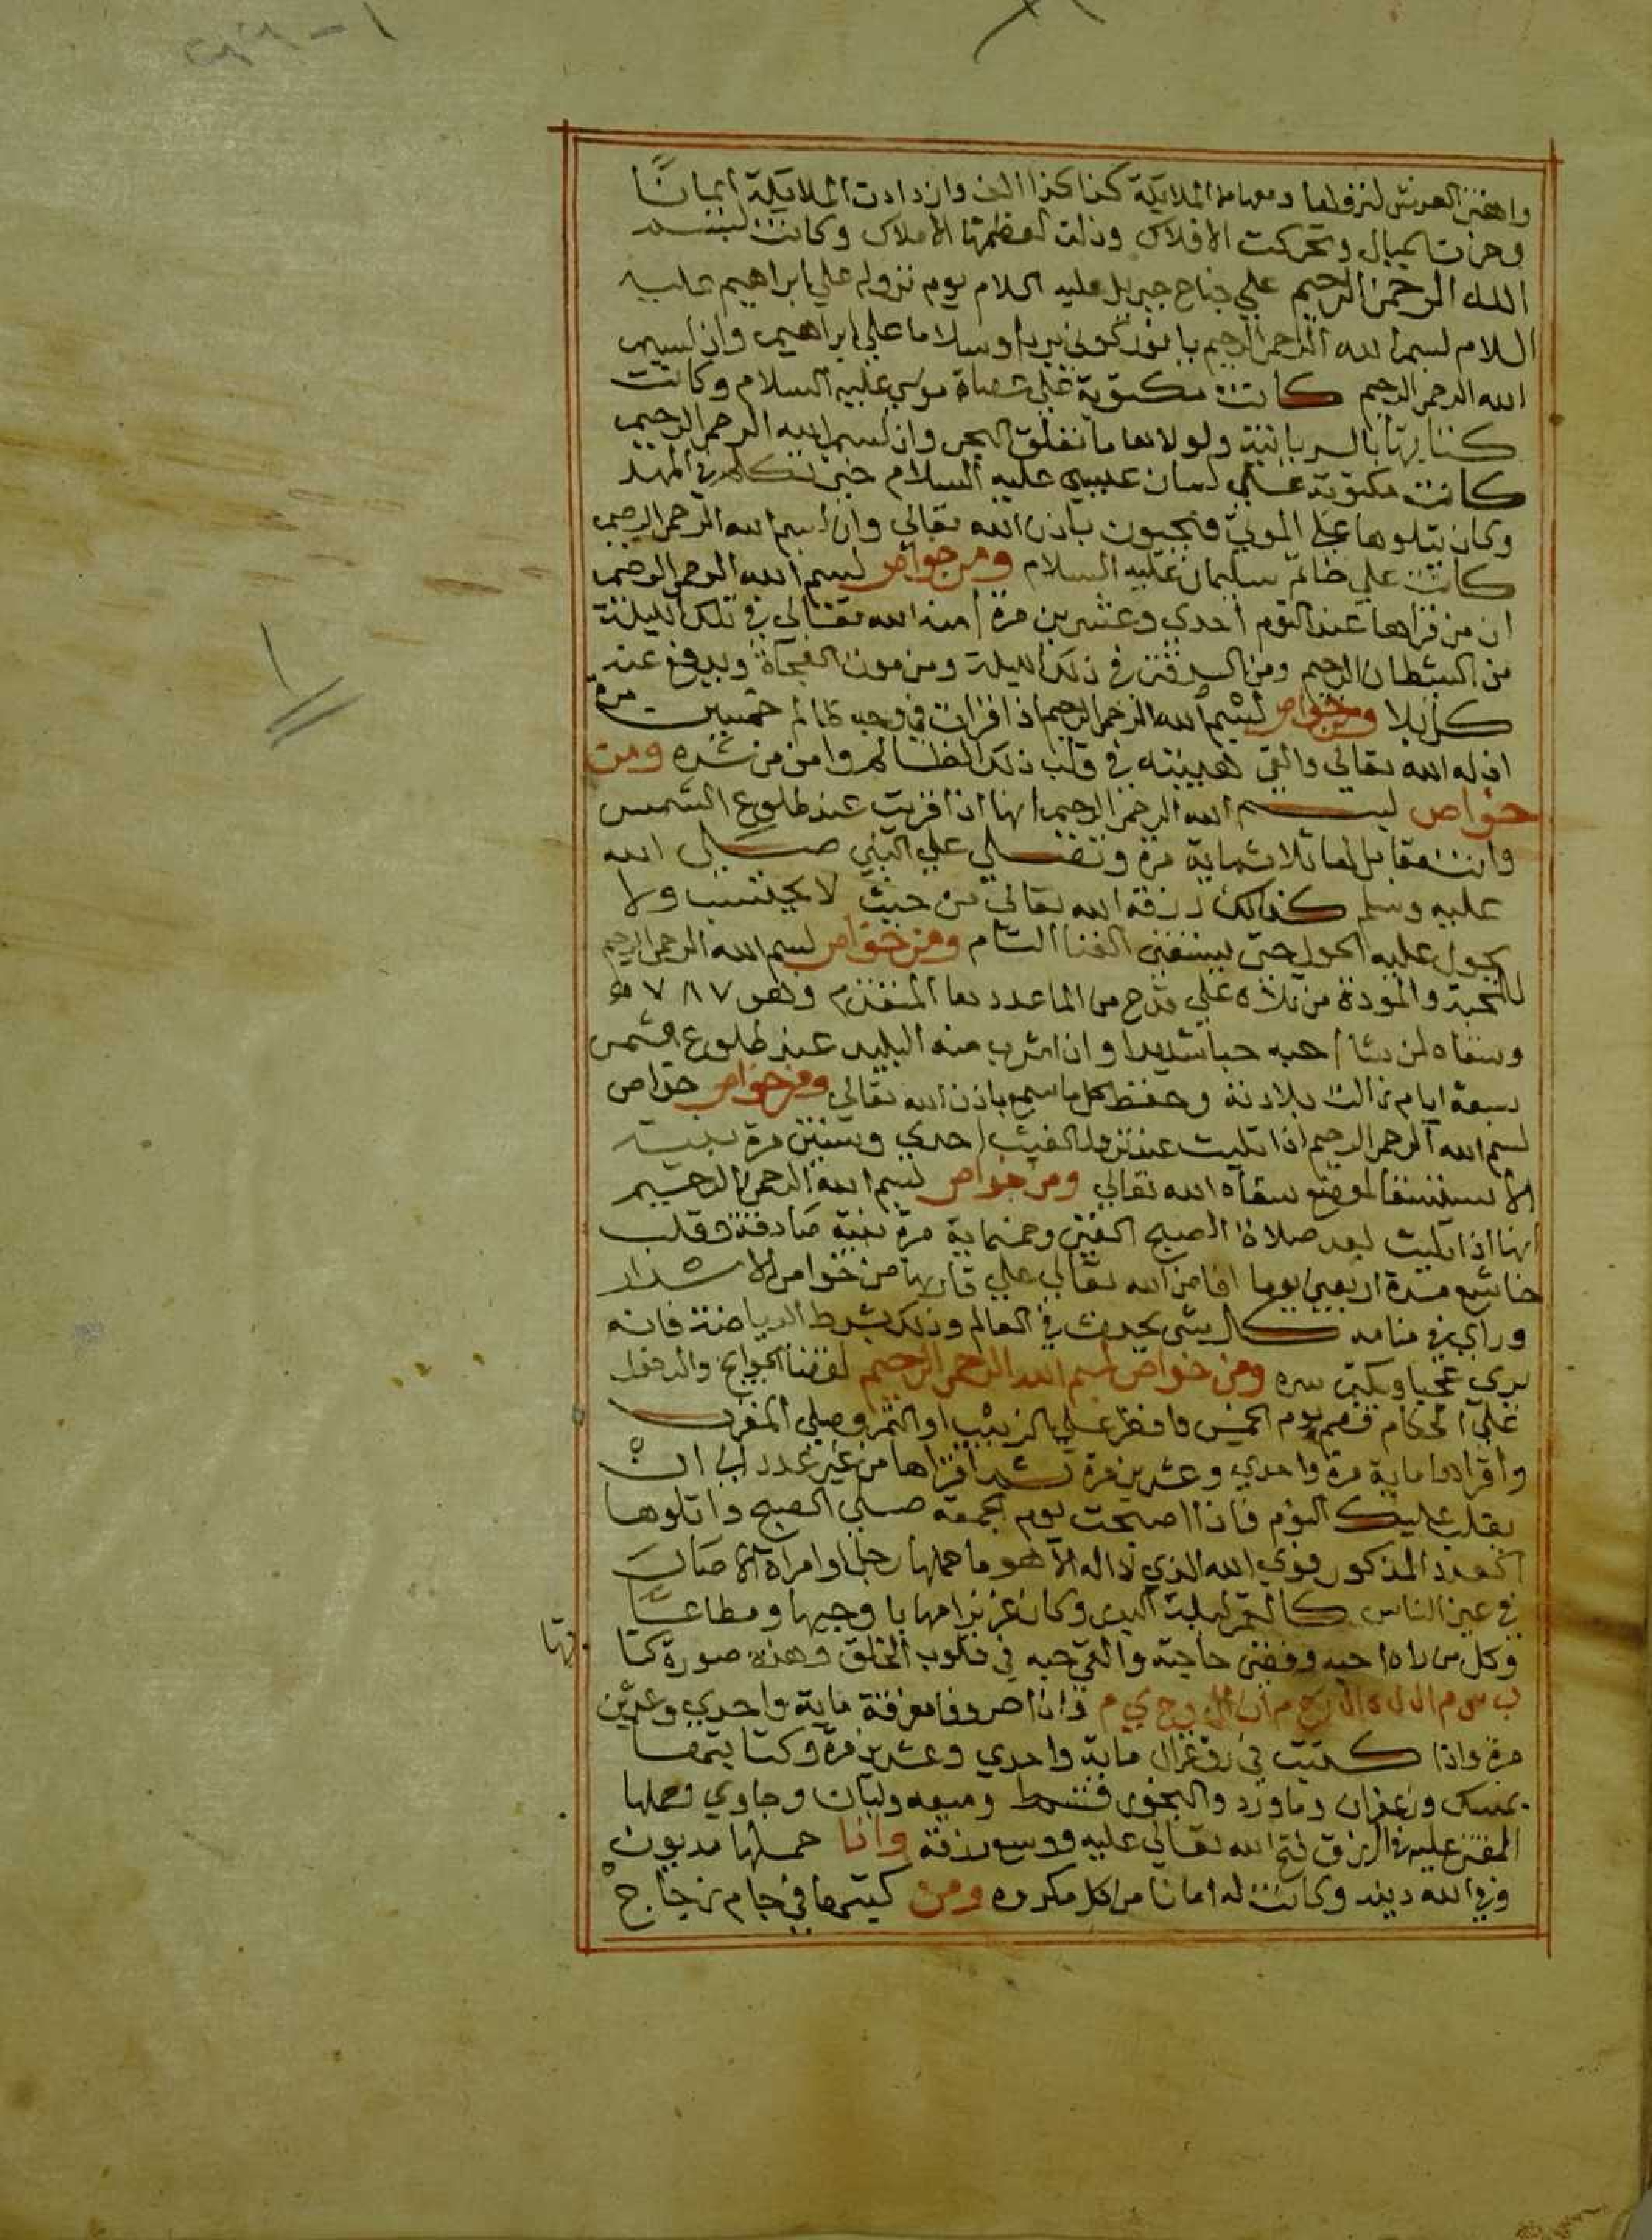 واهتز العرش لنزولها ومعها من الملايكة كذا كذا الف وازدادت الملايكة ايمانا
وخرت الجبال وتحركت الافلاك وذلت لعظمتها الاملاك وكانت بسم
الله الرحمن الرحيم علي جناح جبريل عليه السلام يوم نزوله علي ابراهيم عليه
السلام بسم الله الرحمن الرحيم يا نور كوني بردا وسلاما علي ابراهيم وان بسم
الله الرحمن الرحيم كانت مكتوبة علي عصاة موسي عليه السلام وكانت
كتابتها بالسريانية ولولاها ما نفلق البحر وان بسم الله الرحمن الرحيم
كانت مكتوبة علي لسان عيسي عليه السلام حين تكلم في المهد
وكان يتلوها علي الموتي فيحيون باذن الله تعالي وان بسم الله الرحمن الرحيم
كانت علي خاتم سليمان عليه السلام ومن خواص بسم الله الرحمن الرحيم
ان من قراها عند النوم احدي وعشرين مرة امنه الله تعالي في تلك الليلة
من الشطان الرجيم ومن السرقة في ذلك الليلة ومن موت الفجاة ويدفع عنه
كل بلا ومن خواص بسم الله الرحمن الرحيم اذا قرات في وجه ظالم خمسين مرة
اذله الله تعالي والقي هيبته في قلب ذلك الظالم وامن من شره ومن
خواص بسم الله الرحمن الرحيم انها اذا قريت عند طلوع الشمس
وانت مقابل لها ثلاثماية مرة وتصلي علي النبي صلي الله
عليه وسلم كذالك رزقه الله تعالي من حيث لا يحتسب ولا
يحول عليه الحول حتي يستغني الغنا التام ومن خواص بسم الله الرحمن الرحيم
للمحبة والمودة من تلاه علي قدح من الما عددها المتقدم وهو ٧٨٧ مرة
وسقاه لمن شا احبه حبا شديدا وان اشرب منه البليد عند طلوع الشمس
سبعة ايام زالت بلادته وحفظ كل ما سمع باذن الله تعالي ومن خواص خواص
بسم الله الرحمن الرحيم اذا تليت عند نزول الغيث احدي وستين مرة بنية
الاستسقا لموضع سقاه الله تعالي ومن خواص بسم الله الرحمن الرحيم
انها اذا تليت بعد صلاة الصبح الفين وخمسماية مرة بنية صادقة وقلب
خاشع مدة اربعين يوما افاض الله تعالي علي قاريها من خوامص الاسرار
وراي في منامه كل شي يحدث في العالم وذلك بشرط الرياضة فانه
يري عجبا ويكتم سره ومن خواص بسم الله الرحمن الرحيم لقضا الحوايج والدخول
علي الحكام فصم يوم الخميس وافطر علي الزبيب او التمر وصلي المغرب
واقراها ماية مرة واحدي وعشرين مرة ثم اقراها من غير عدد الي ان
يغلب عليك النوم فاذا اصبحت يوم الجمعة صلي الصبح واتلوها
العدد المذكور فوي الله الذي لا اله الا هو ما حملها رجل او امراة الا صار
في عين الناس كالقمر ليلة البدر وكان عزيزا مهابا وجيها ومطاعا
وكل من راه احبه وقضي حاجته والقي حبه في قلوب الخلق وهذه صورة كتا
بتها
ب س م ا ل ل ه ا ل ر ح م ا ن ا ل ر ح ي م واذا حروفا مفرقة ماية واحدي وعشرين
مرة واذا كتبت في رق غزال ماية واحدي وعشرين مرة وكتابتها
بمسك وزعفران وماورد والبخور قسط وميعه ولبان وجاوي وحملها
المقتر عليه في الرزق فتح الله تعالي عليه ووسع رزقه واذا حملها مديون
وفي الله دينه وكانت له امانا من كل مكروه ومن كتبها في جام زجاج